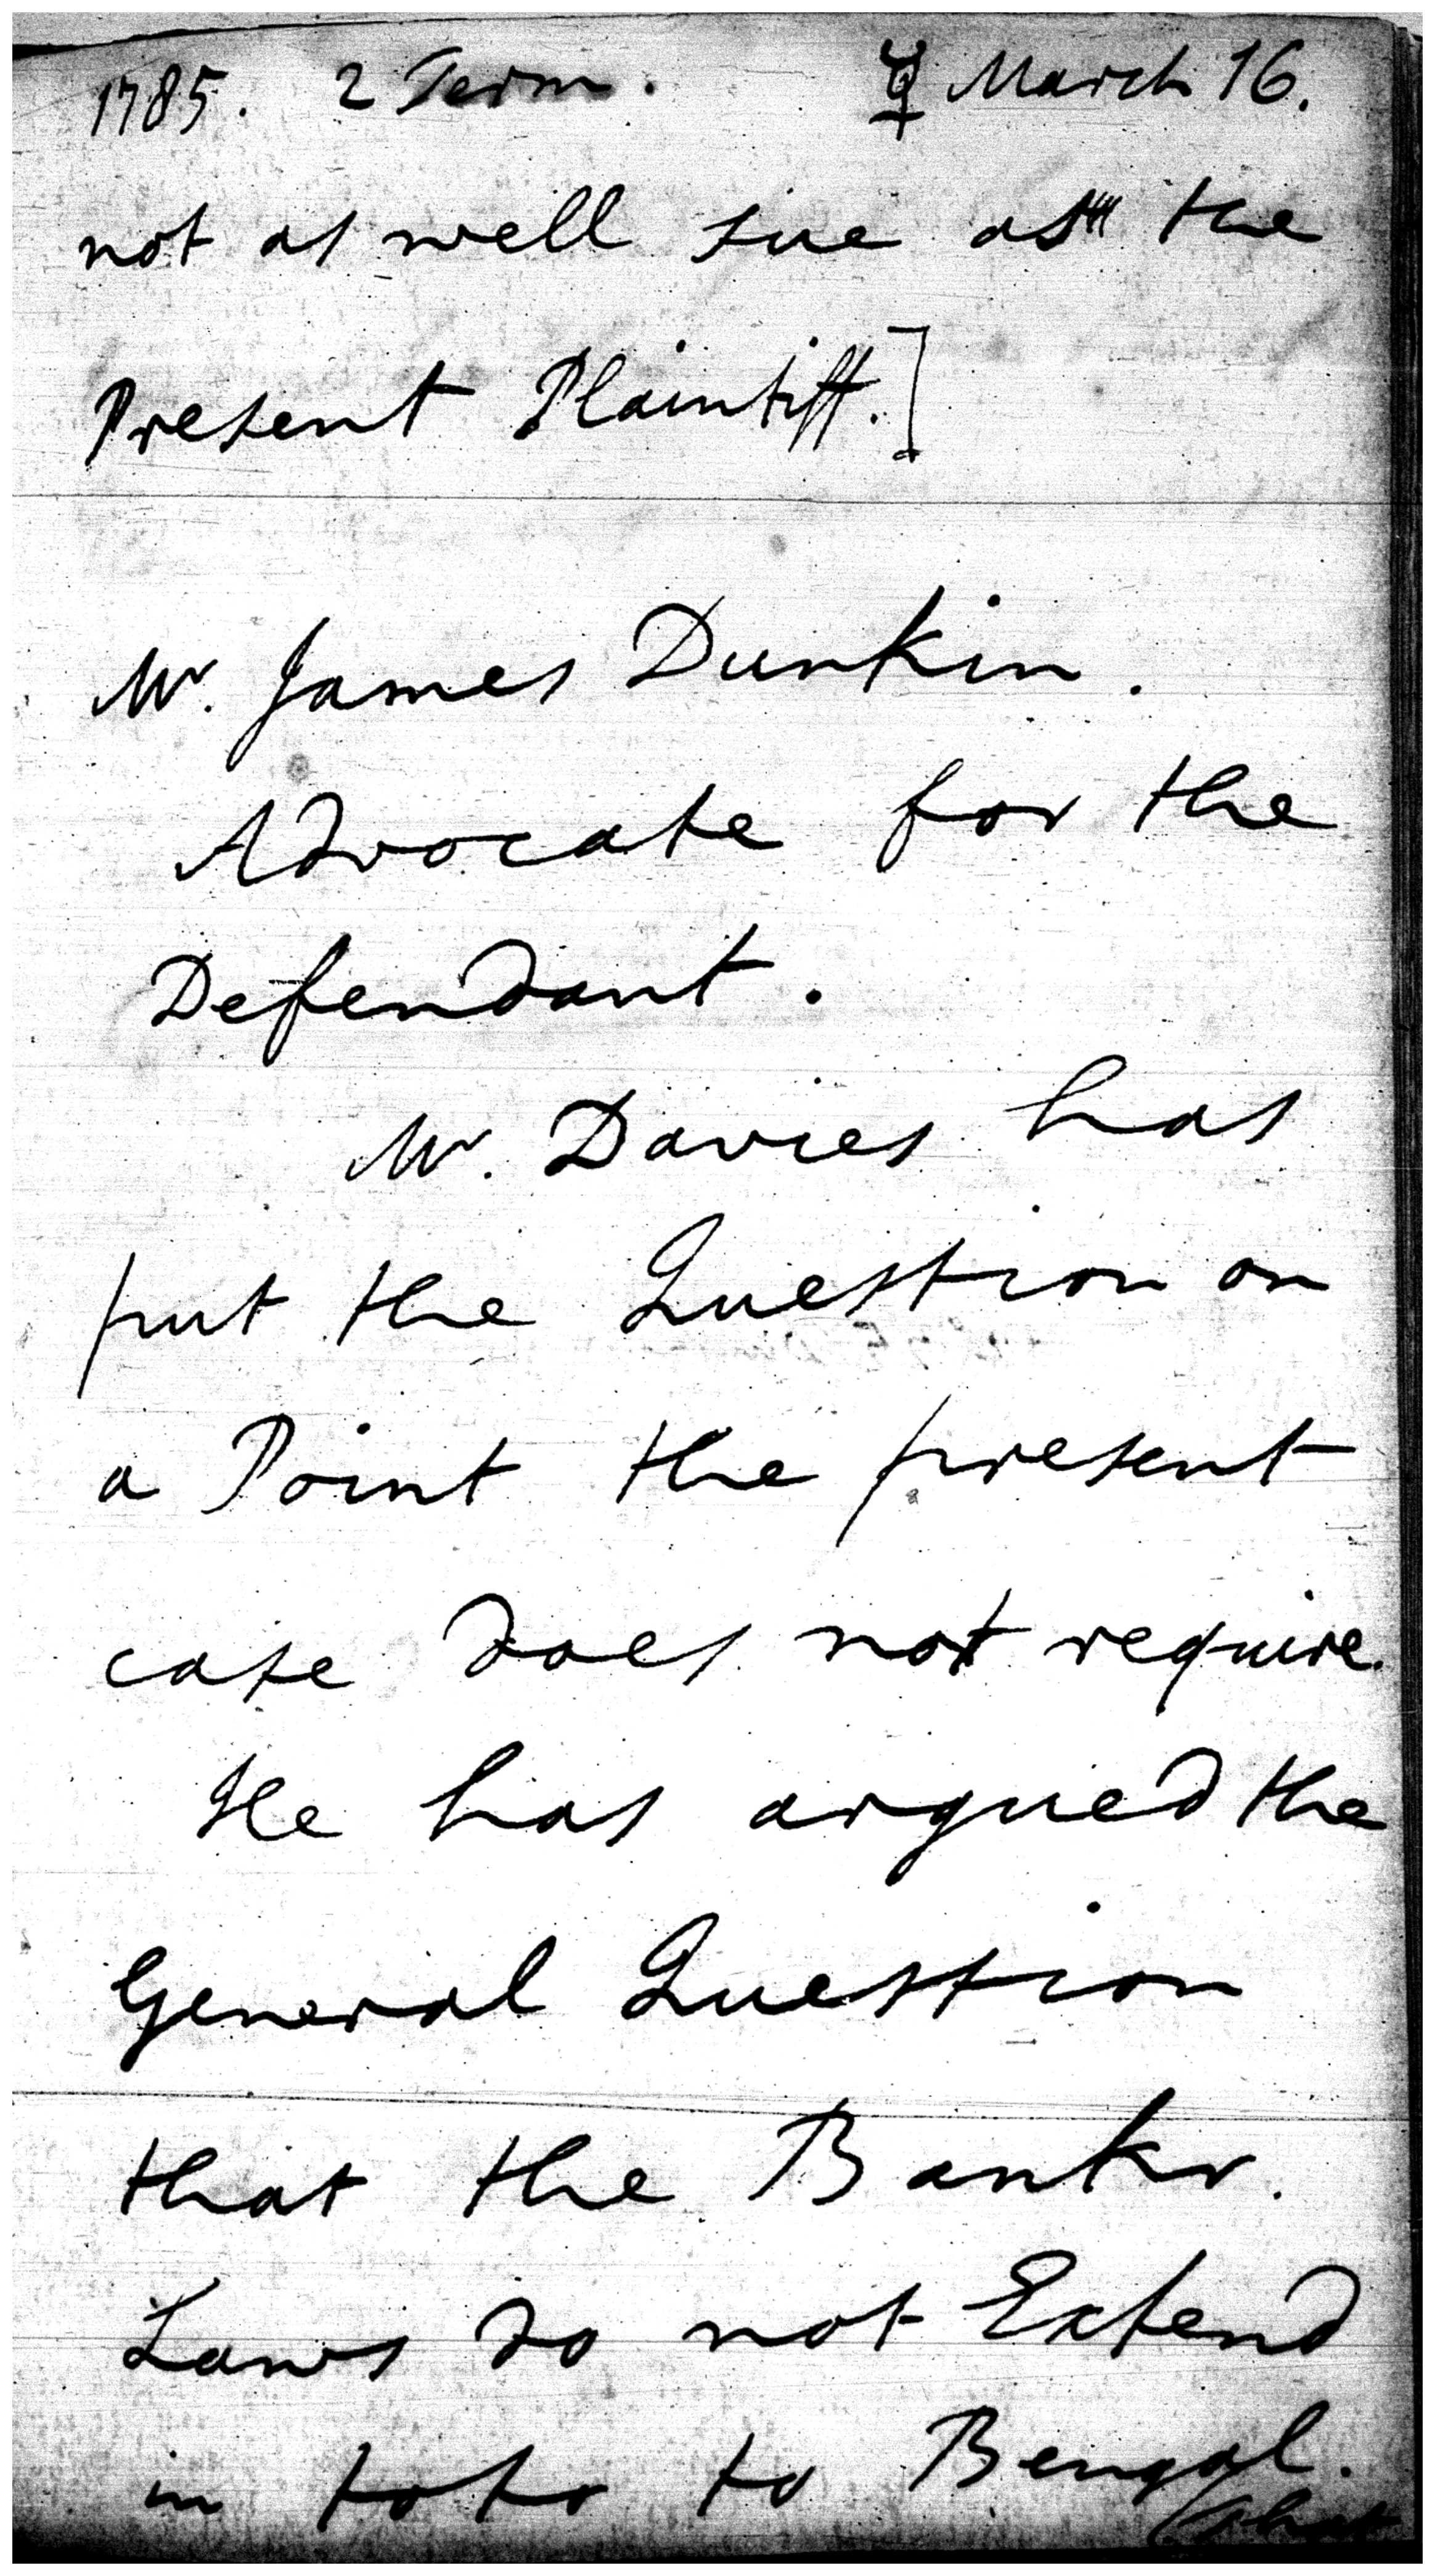 1785. 2 Term. ☿ March 16.
not as well sue as the
Present Plaintiff.]
Mr. James Dunkin.
Advocate for the
Defendant.
Mr. Davies has
put the Question on
a Point the present
case does not require.
He has argued the
General Question
that the Bankr.
Laws do not Extend
in toto to Bengal.
(that